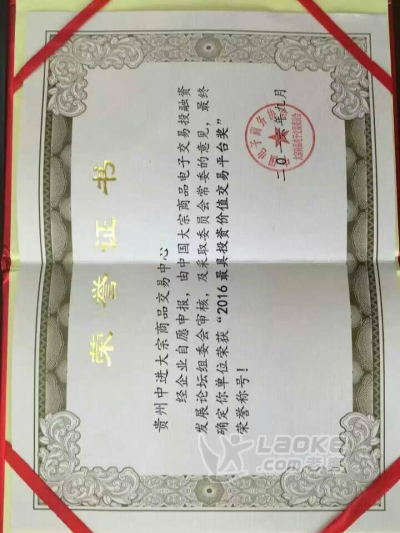 荣誉证书
贵州中进大宗商品交易中心
经企业自愿申报，由中国大宗商品电子交易投融资
发展论坛组委会审核，及采取委员会常委的意见，最终
确定你单位荣获“2016最具投资价值交易平台奖”
荣誉称号！
二〇一六年九月
LaoKe
.com